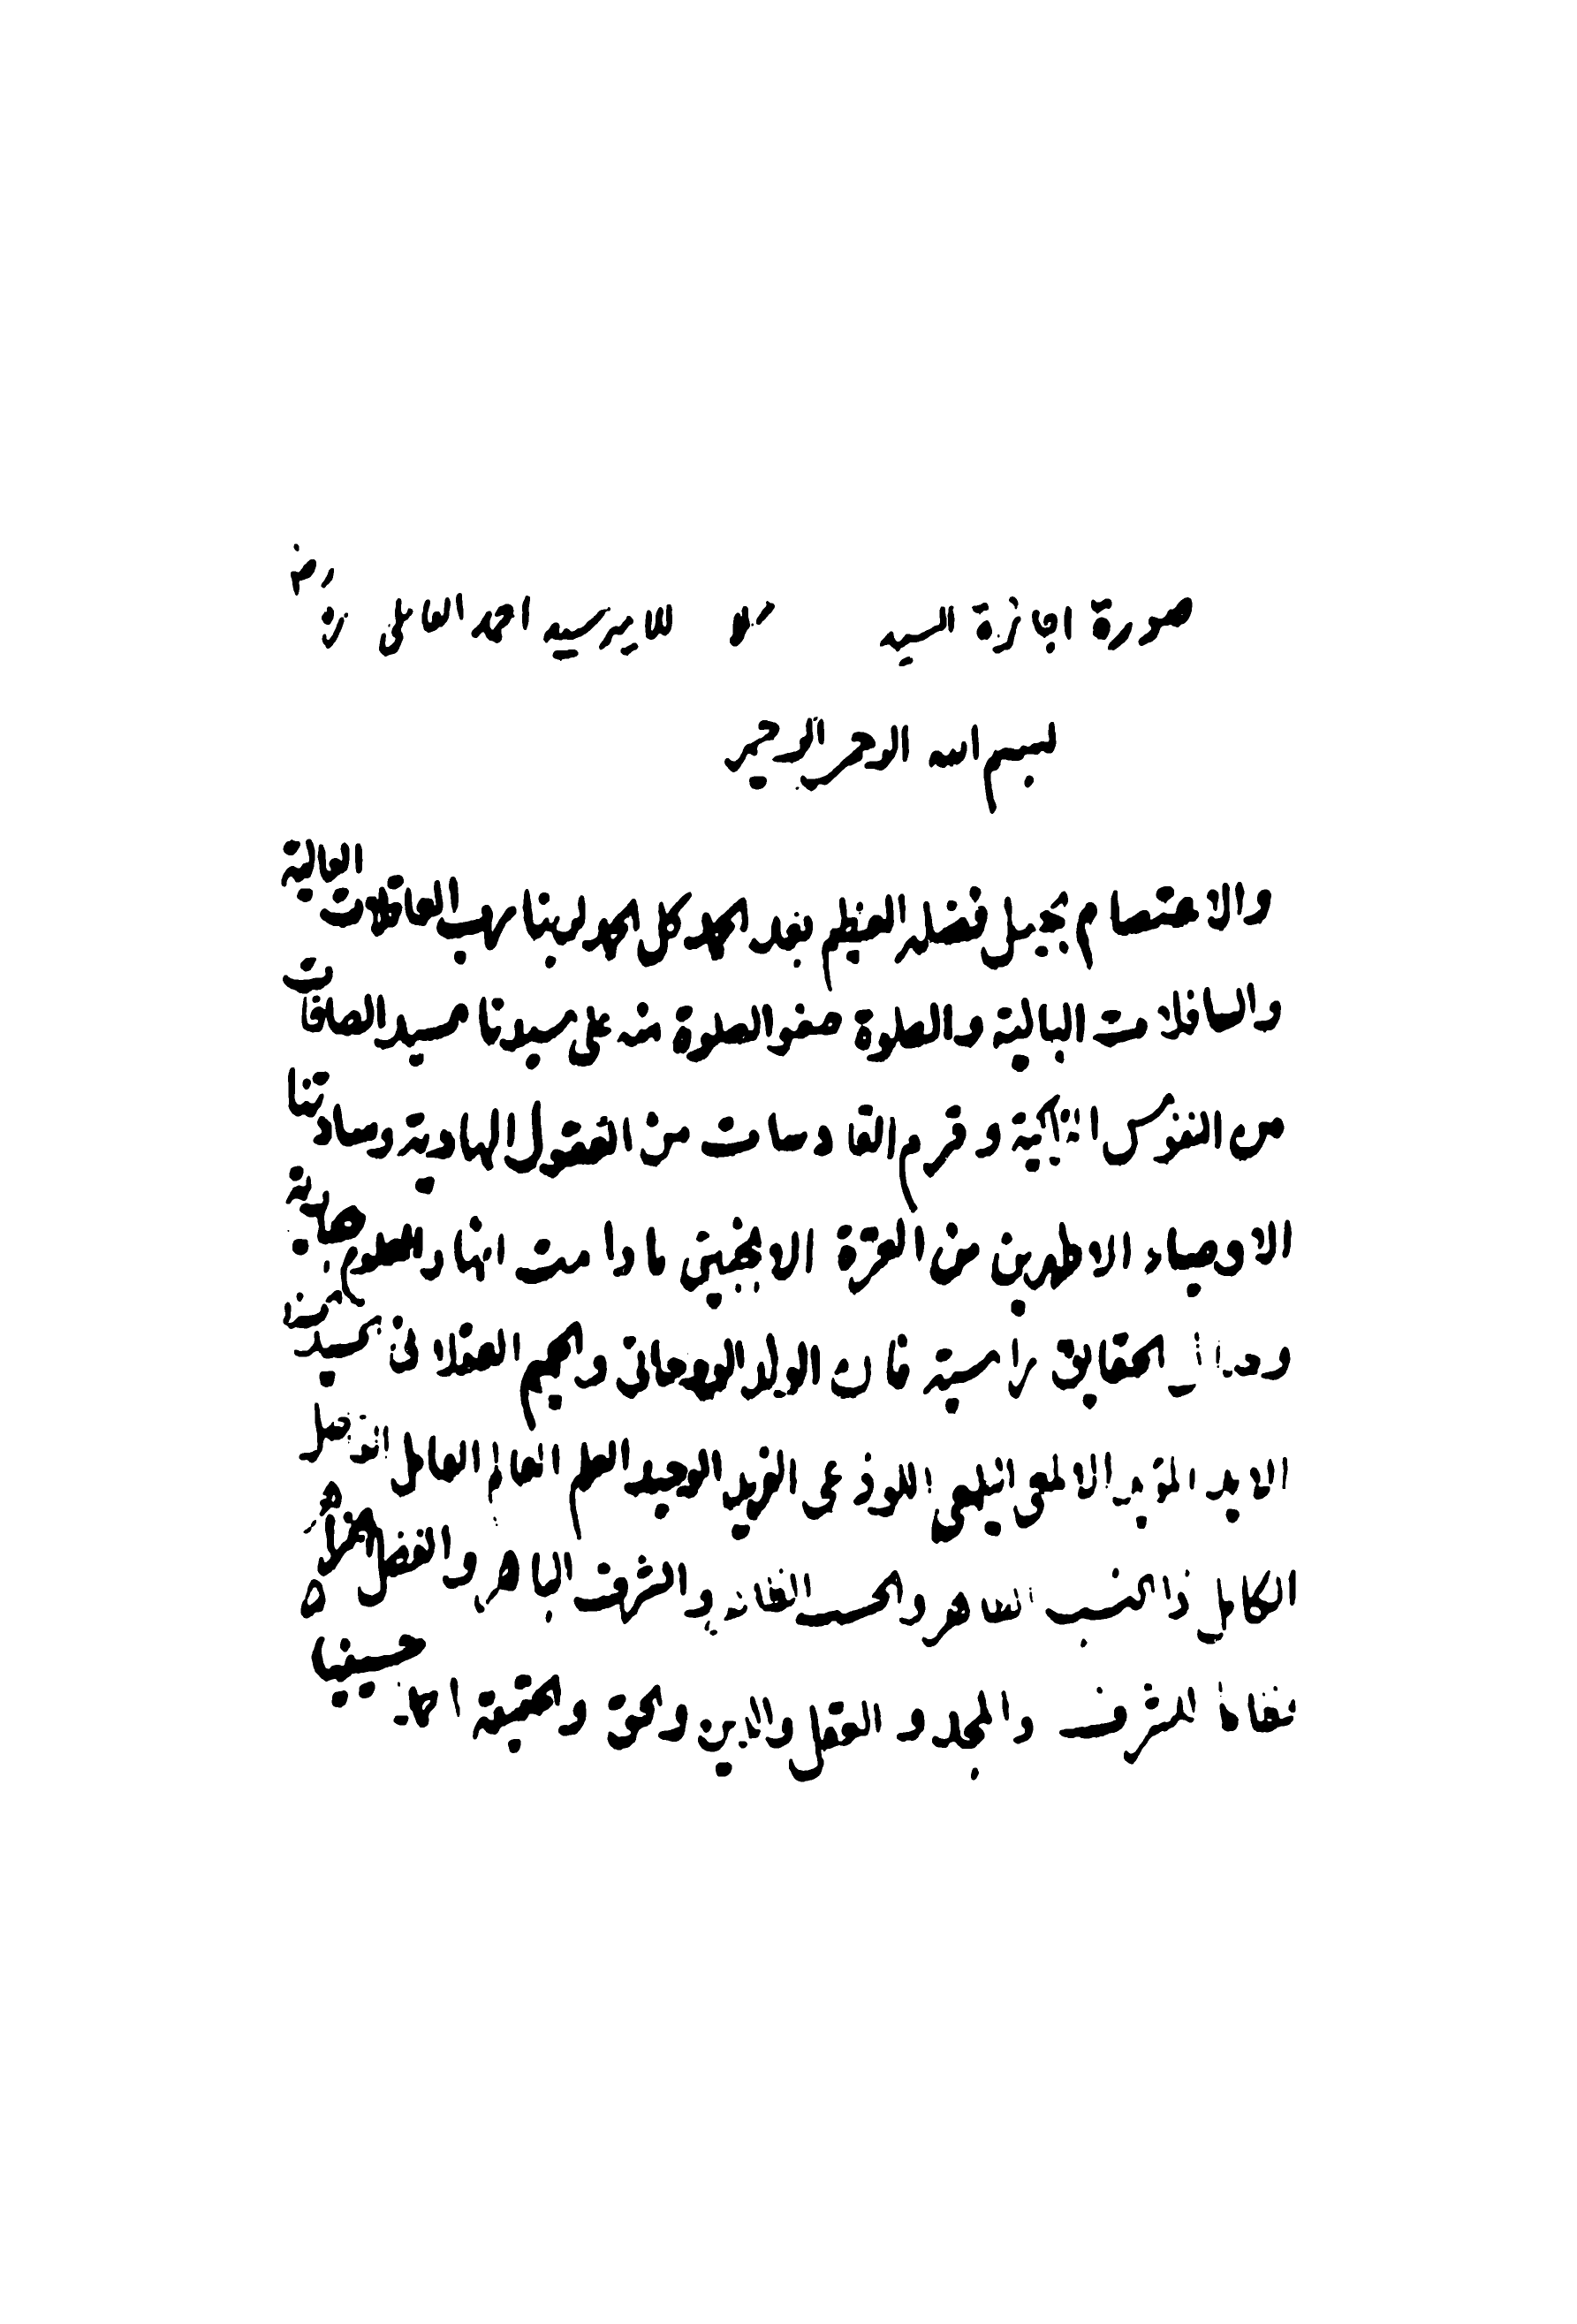 صورة اجازة السيد للامير سيد احمد العاملي
بسم الله الرحمن الرحيم
والاعتصام بجميل فضله العظيم بعد الحمد كل الحمد لربنا رب العاقلات العالية
والسافلات البالية والصلوة صفو الصلوة منه على سيدنا سيد الصاقات
من النفوس الزاكية وقرم القادسات من العقول الهادية وسادتنا
الاوصياء الاطهرين من العترة الانجبين ما دامت انهار العلوم جارية
الحقايق راسية فان الولد الروحاني والحميم العقلاني السيد السند
الايد المؤيد الالمعي اليلمعي اللوذعي الفريد الوحيد العلم العالم العامل الفاضل
الكامل ذا النسب الطاهر والحسب الظاهر والشرف الباهر والفضل الزاهر
نظاما للشرف والمجد والعقل والدين والحق والحقيقة احمد حسينيا